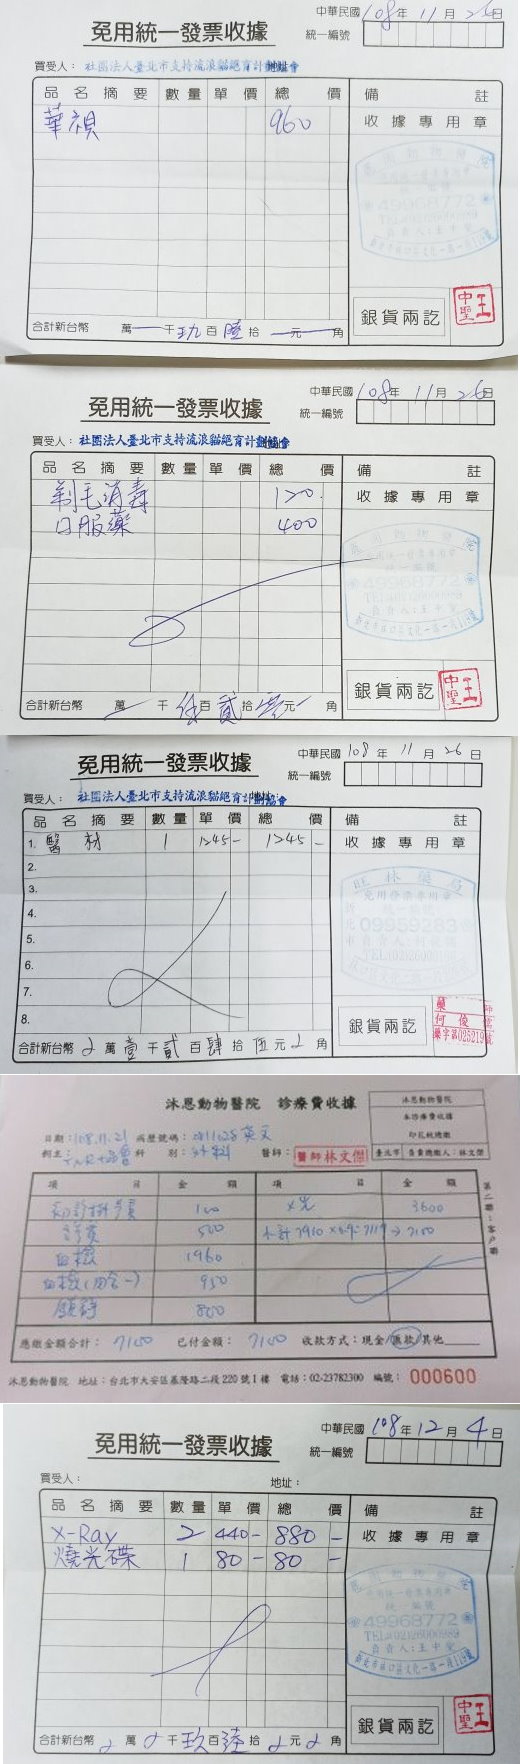 中華民國108年11月26日
免用統一發票收據
統一編號
買受人：社團法人臺北市支持流浪貓絕育計劃協會
品名摘要 數量 單價 總價 備註
華視 960 收據專用章
49968772
銀貨兩訖
王中聖
合計新台幣 萬 千玖百陸拾 元 角
中華民國108年11月26日
免用統一發票收據
統一編號
買受人：社團法人臺北市支持流浪貓絕育計劃協會
品名摘要 數量 單價 總價 備註
剃毛消毒 120. 收據專用章
口服藥 400
49968772
銀貨兩訖
王中聖
合計新台幣 萬 千伍百貳拾零元 角
中華民國108年11月26日
免用統一發票收據
統一編號
買受人：社團法人臺北市支持流浪貓絕育計劃協會
品名摘要 數量 單價 總價 備註
1. 醫材 1 1245- 1245- 收據專用章
2.
3.
4.
5.
6.
7.
8.
旺林藥局
免用發票專用章
統一編號
09959283
銀貨兩訖
藥師
何優
藥字第025219號
合計新台幣 萬壹千貳百肆拾伍元 角
沐恩動物醫院 診療費收據
沐恩動物醫院
本診療費收據
印花稅總繳
臺北市 負責總繳人：林文傑
日期：108.11.21 病歷號碼：
飼主： 科別：外科 醫師：醫師林文傑
項目 金額 項目 金額
初診掛號費 100 X光 3600
500 小計7910×0.9=7119→7100
血檢 1960
950
鎮靜 800
第二聯：客戶聯
應繳金額合計：7100 已付金額：7100 收款方式：現金/匯款/其他
沐恩動物醫院 地址：台北市大安區基隆路二段220號1樓 電話：02-23782300 編號：000600
中華民國108年12月4日
免用統一發票收據
統一編號
買受人： 地址：
品名摘要 數量 單價 總價 備註
X-Ray 2 440- 880- 收據專用章
燒光碟 1 80- 80-
49968772
銀貨兩訖
王中聖
合計新台幣 萬 千玖百陸拾 元 角